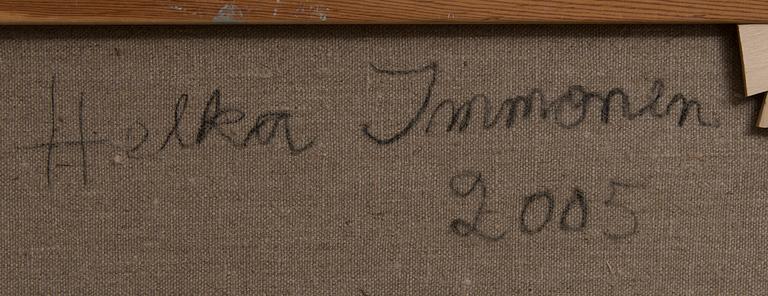 Helka Immonen
2005